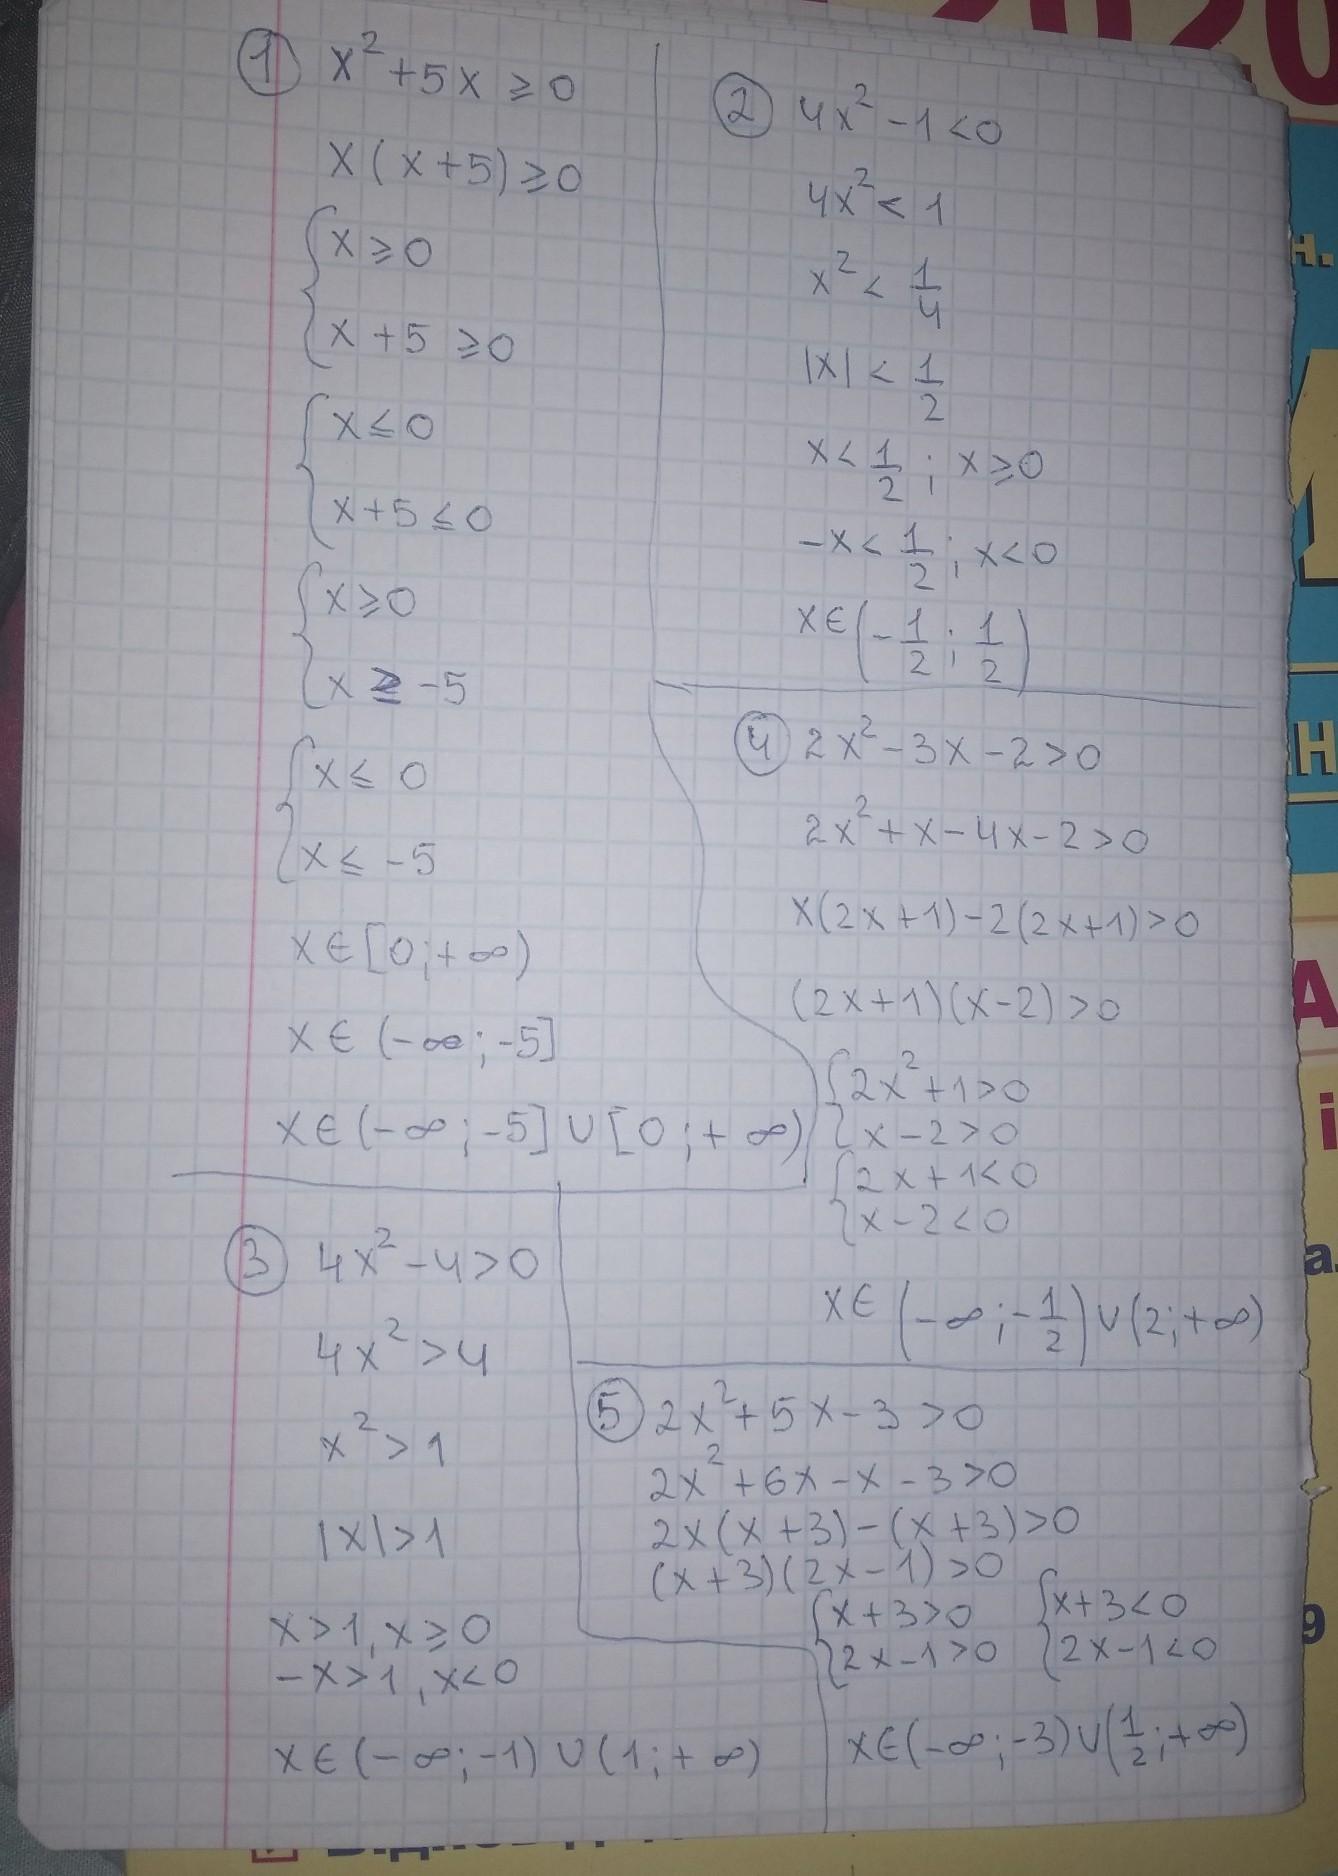 2020
① x² + 5x ⩾ 0
x(x + 5) ⩾ 0
{ x ⩾ 0
x + 5 ⩾ 0
{ x ⩽ 0
x + 5 ⩽ 0
{ x ⩾ 0
x ⩾ -5
{ x ⩽ 0
x ⩽ -5
x ∈ [0; +∞)
x ∈ (-∞; -5]
x ∈ (-∞; -5] ∪ [0; +∞)
② 4x² - 1 < 0
4x² < 1
x² < 1/4
|x| < 1/2
x < 1/2; x ⩾ 0
-x < 1/2; x < 0
x ∈ (-1/2; 1/2)
③ 4x² - 4 > 0
4x² > 4
x² > 1
|x| > 1
x > 1, x ⩾ 0
-x > 1, x < 0
x ∈ (-∞; -1) ∪ (1; +∞)
④ 2x² - 3x - 2 > 0
2x² + x - 4x - 2 > 0
x(2x + 1) - 2(2x + 1) > 0
(2x + 1)(x - 2) > 0
{ 2x² + 1 > 0
x - 2 > 0
{ 2x + 1 < 0
x - 2 < 0
x ∈ (-∞; -1/2) ∪ (2; +∞)
⑤ 2x² + 5x - 3 > 0
2x² + 6x - x - 3 > 0
2x(x + 3) - (x + 3) > 0
(x + 3)(2x - 1) > 0
{ x + 3 > 0 { x + 3 < 0
2x - 1 > 0 2x - 1 < 0
x ∈ (-∞; -3) ∪ (1/2; +∞)